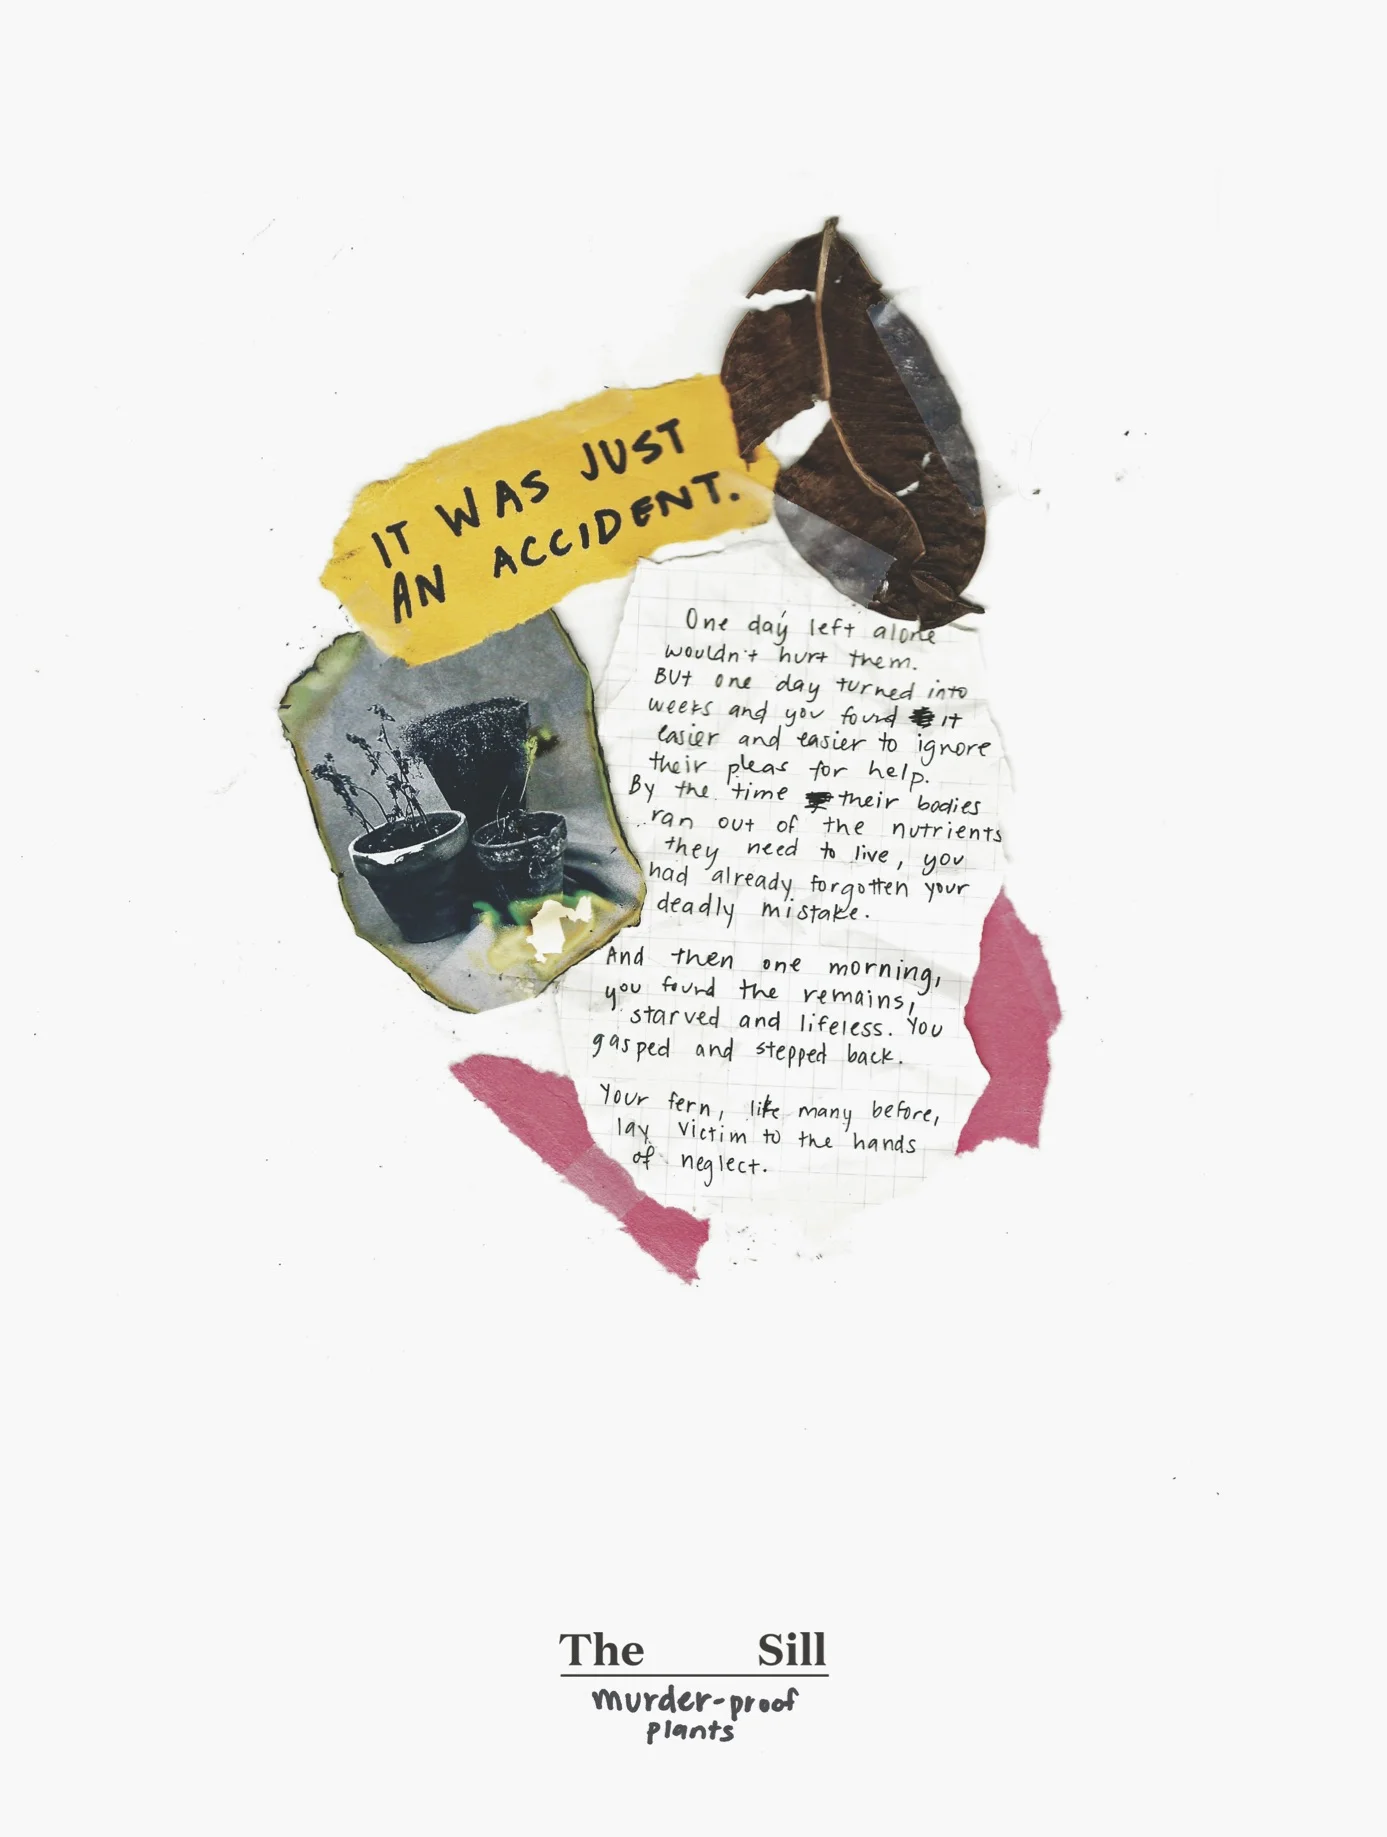 IT WAS JUST
AN ACCIDENT.
One day left alone
wouldn't hurt them.
But one day turned into
weeks and you found it
easier and easier to ignore
their pleas for help.
By the time their bodies
ran out of the nutrients
they need to live, you
had already forgotten your
deadly mistake.
And then one morning,
you found the remains,
starved and lifeless. You
gasped and stepped back.
Your fern, like many before,
lay victim to the hands
of neglect.
The Sill
murder-proof
plants